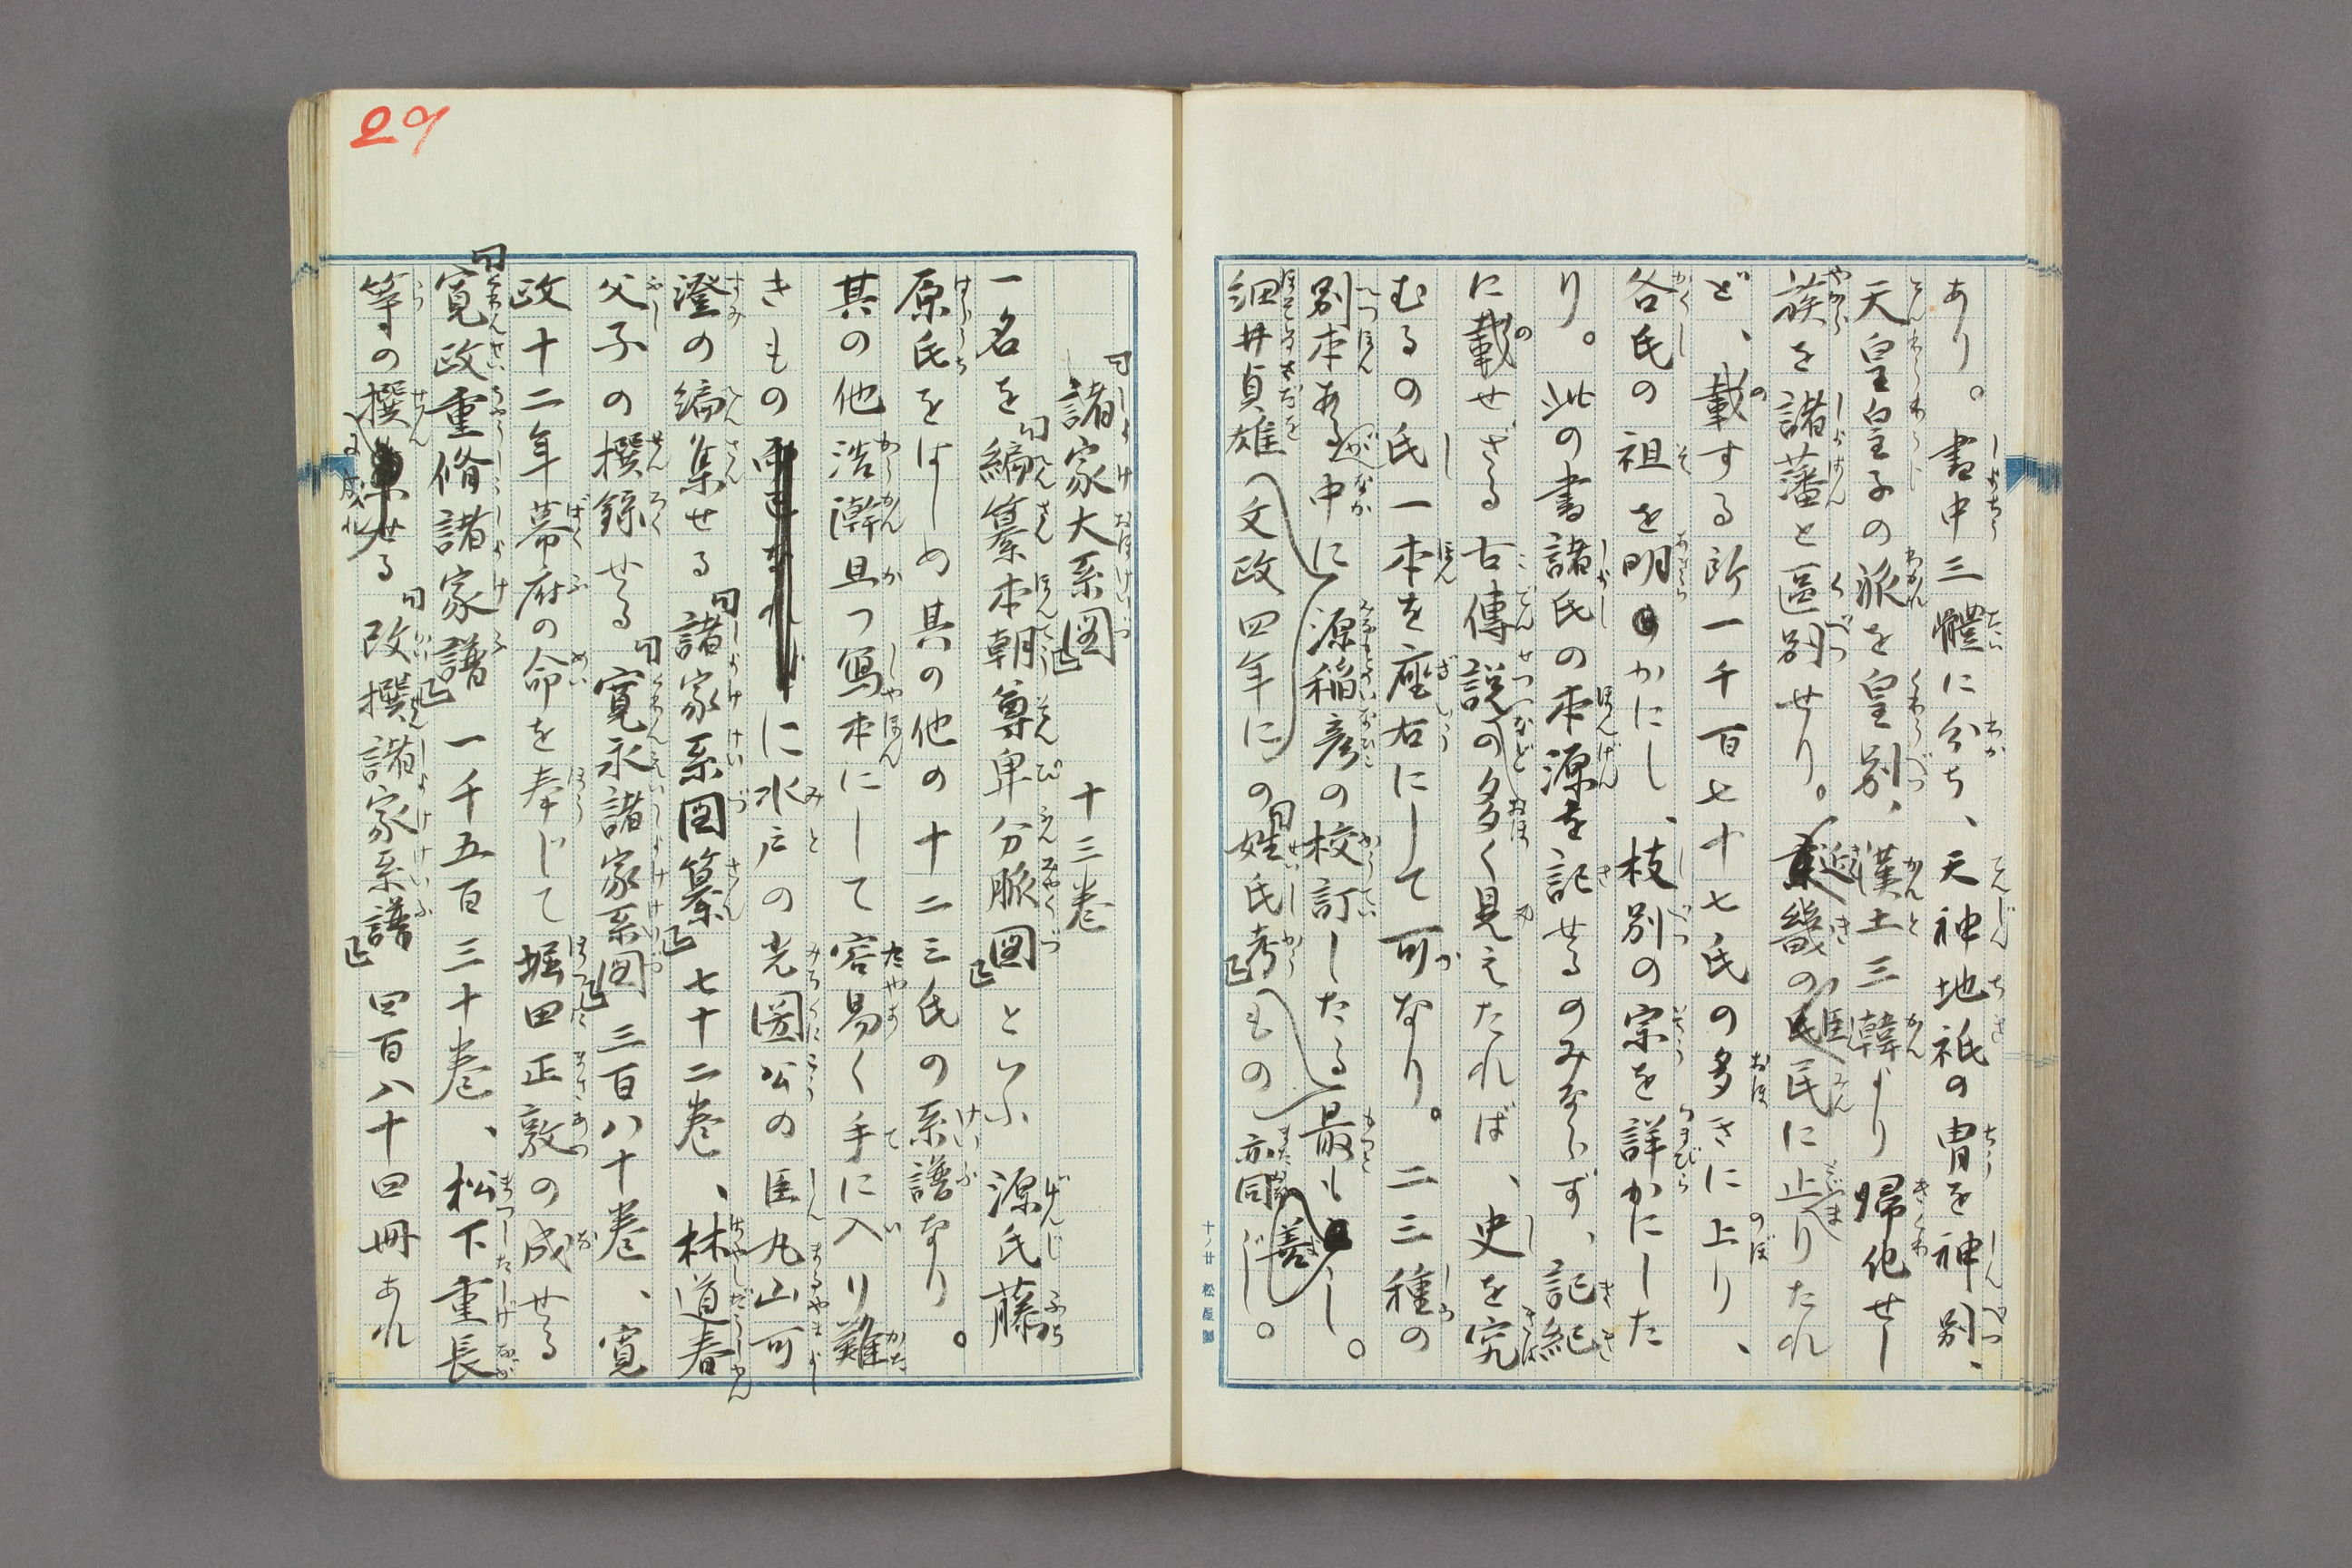 あり。書中三體に分ち、天神地祇の冑を神別、
天皇皇子の派を皇別、漢土三韓より帰化せし
族を諸藩と區別せり。畿の民に止りたれ
ど、載する所一千百七十七氏の多きに上り、
各氏の祖を明かにし、枝別の宗を詳かにした
り。此の書諸氏の本源を記せるのみならず、記紀
に載せざる古傳説の多く見えたれば、史を究
むるの氏一本を座右にして可なり。二三種の
別本ある中に源稲彦の校訂したる最も善し。
細井貞雄文政四年にの「姓氏考」もの亦同じ。
十ノ廿 松屋製
「諸家大系図」 十三巻
一名を「編纂本朝尊卑分脈図」といふ 源氏藤
原氏をはじめ其の他の十二三氏の系譜なり。
其の他浩澣且つ寫本にして容易く手に入り難
きものに水戸の光圀公の臣丸山可
澄の編集せる「諸家系図纂」七十二巻、林道春
父子の撰録せる「寛永諸家系図」三百八十巻、寛
政十二年幕府の命を奉じて堀田正敦の成せる
「寛政重脩諸家譜」一千五百三十巻、松下重長
等の撰せる「改撰諸家系譜」四百八十四冊あれ
29